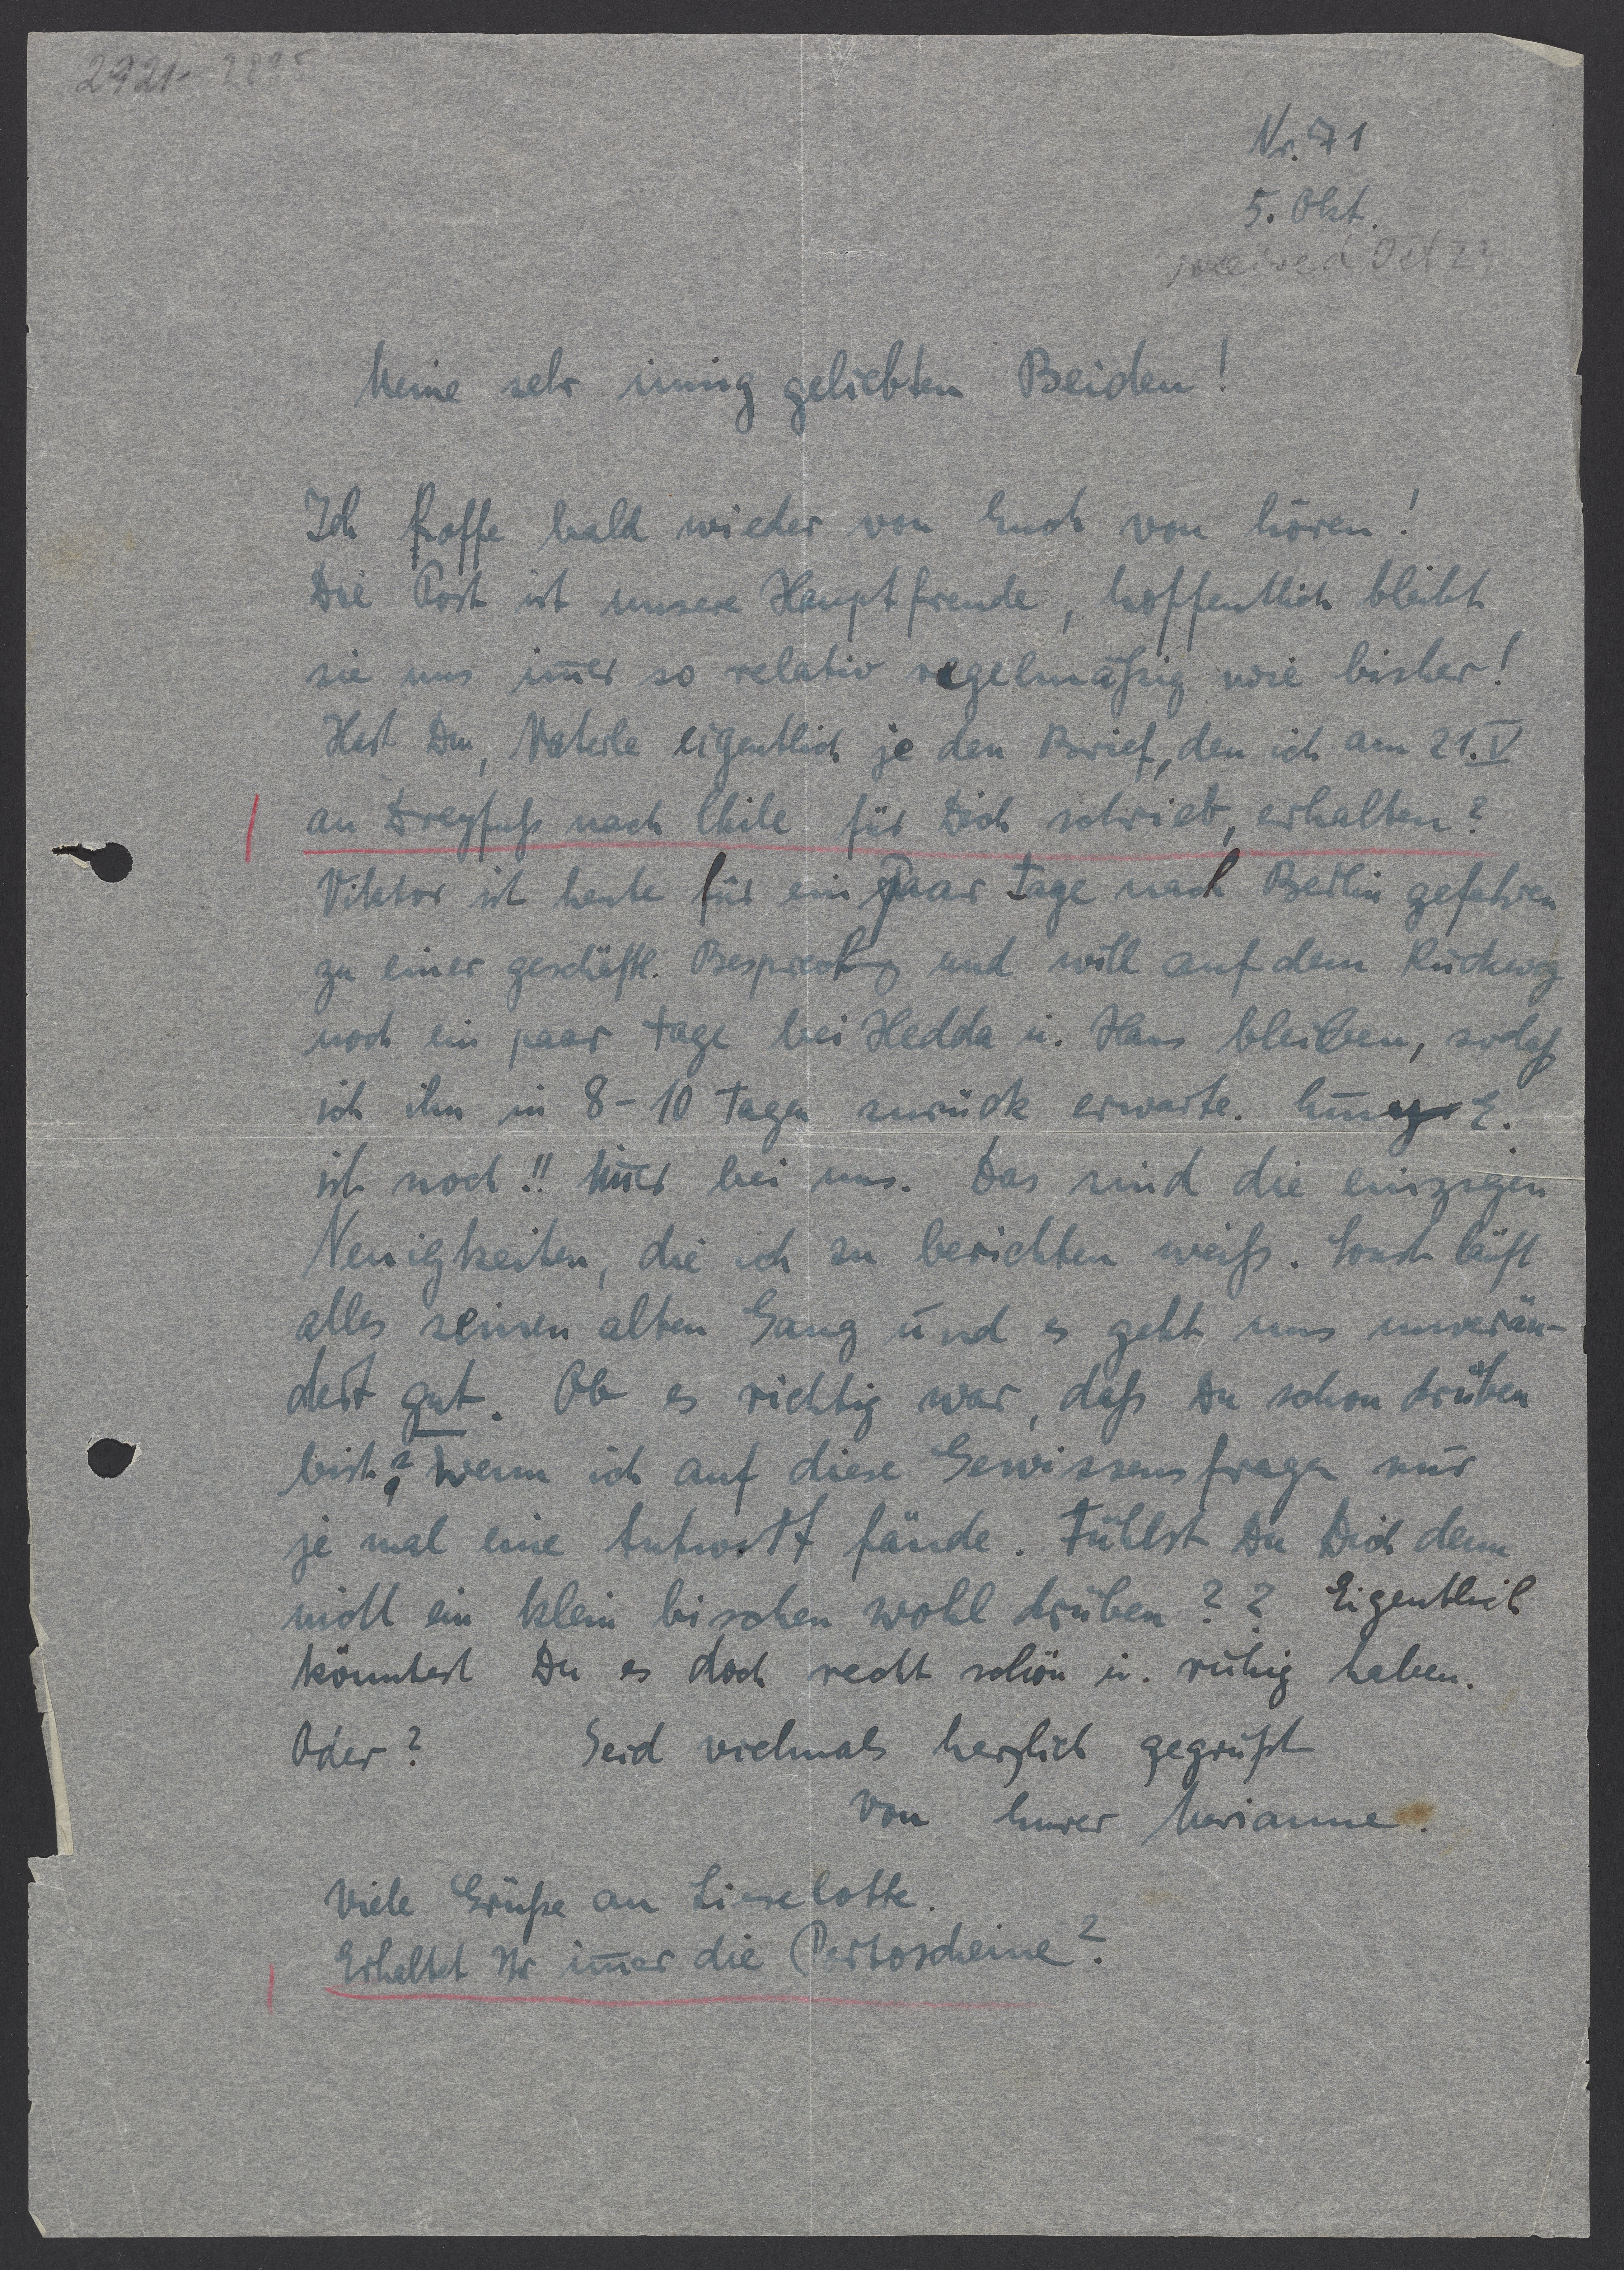 2921-2935
Nr. 71
5. Okt.
received Oct 2
Meine sehr innig geliebten Beiden!
Ich hoffe bald wieder von Euch von hören!
Die Post ist unsere Hauptfreude, hoffentlich bleibt
sie uns im̄er so relativ regelmäßig wie bisher!
Hast Du, Vaterle eigentlich je den Brief, den ich am 21. V
an Dreyfuß nach Chile für Dich schrieb, erhalten?
Viktor ist heute für ein paar Tage nach Berlin gefahren
zu einer geschäftl. Besprechg und will auf dem Rückweg
noch ein paar Tage bei Hedda u. Hans bleiben, sodaß
ich ihn in 8-10 Tagen zurück erwarte. E.
ist noch!! im̄er bei uns. Das sind die einzigen
Neuigkeiten, die ich zu berichten weiß. Sonst läuft
alles seinen alten Gang und es geht uns unverän-
dert gut. Ob es richtig war, daß Du schon drüben
bist? Wenn ich auf diese Gewissensfragen nur
je mal eine Antwort fände. Fühlst Du Dich denn
nicht ein klein bischen wohl drüben?? Eigentlich
könntest Du es doch recht schön u. ruhig haben.
Oder? Seid vielmals herzlich gegrüßt
von Eurer Marianne.
Viele Grüße an Lieselotte.
Erhaltet Ihr im̄er die Portoscheine?